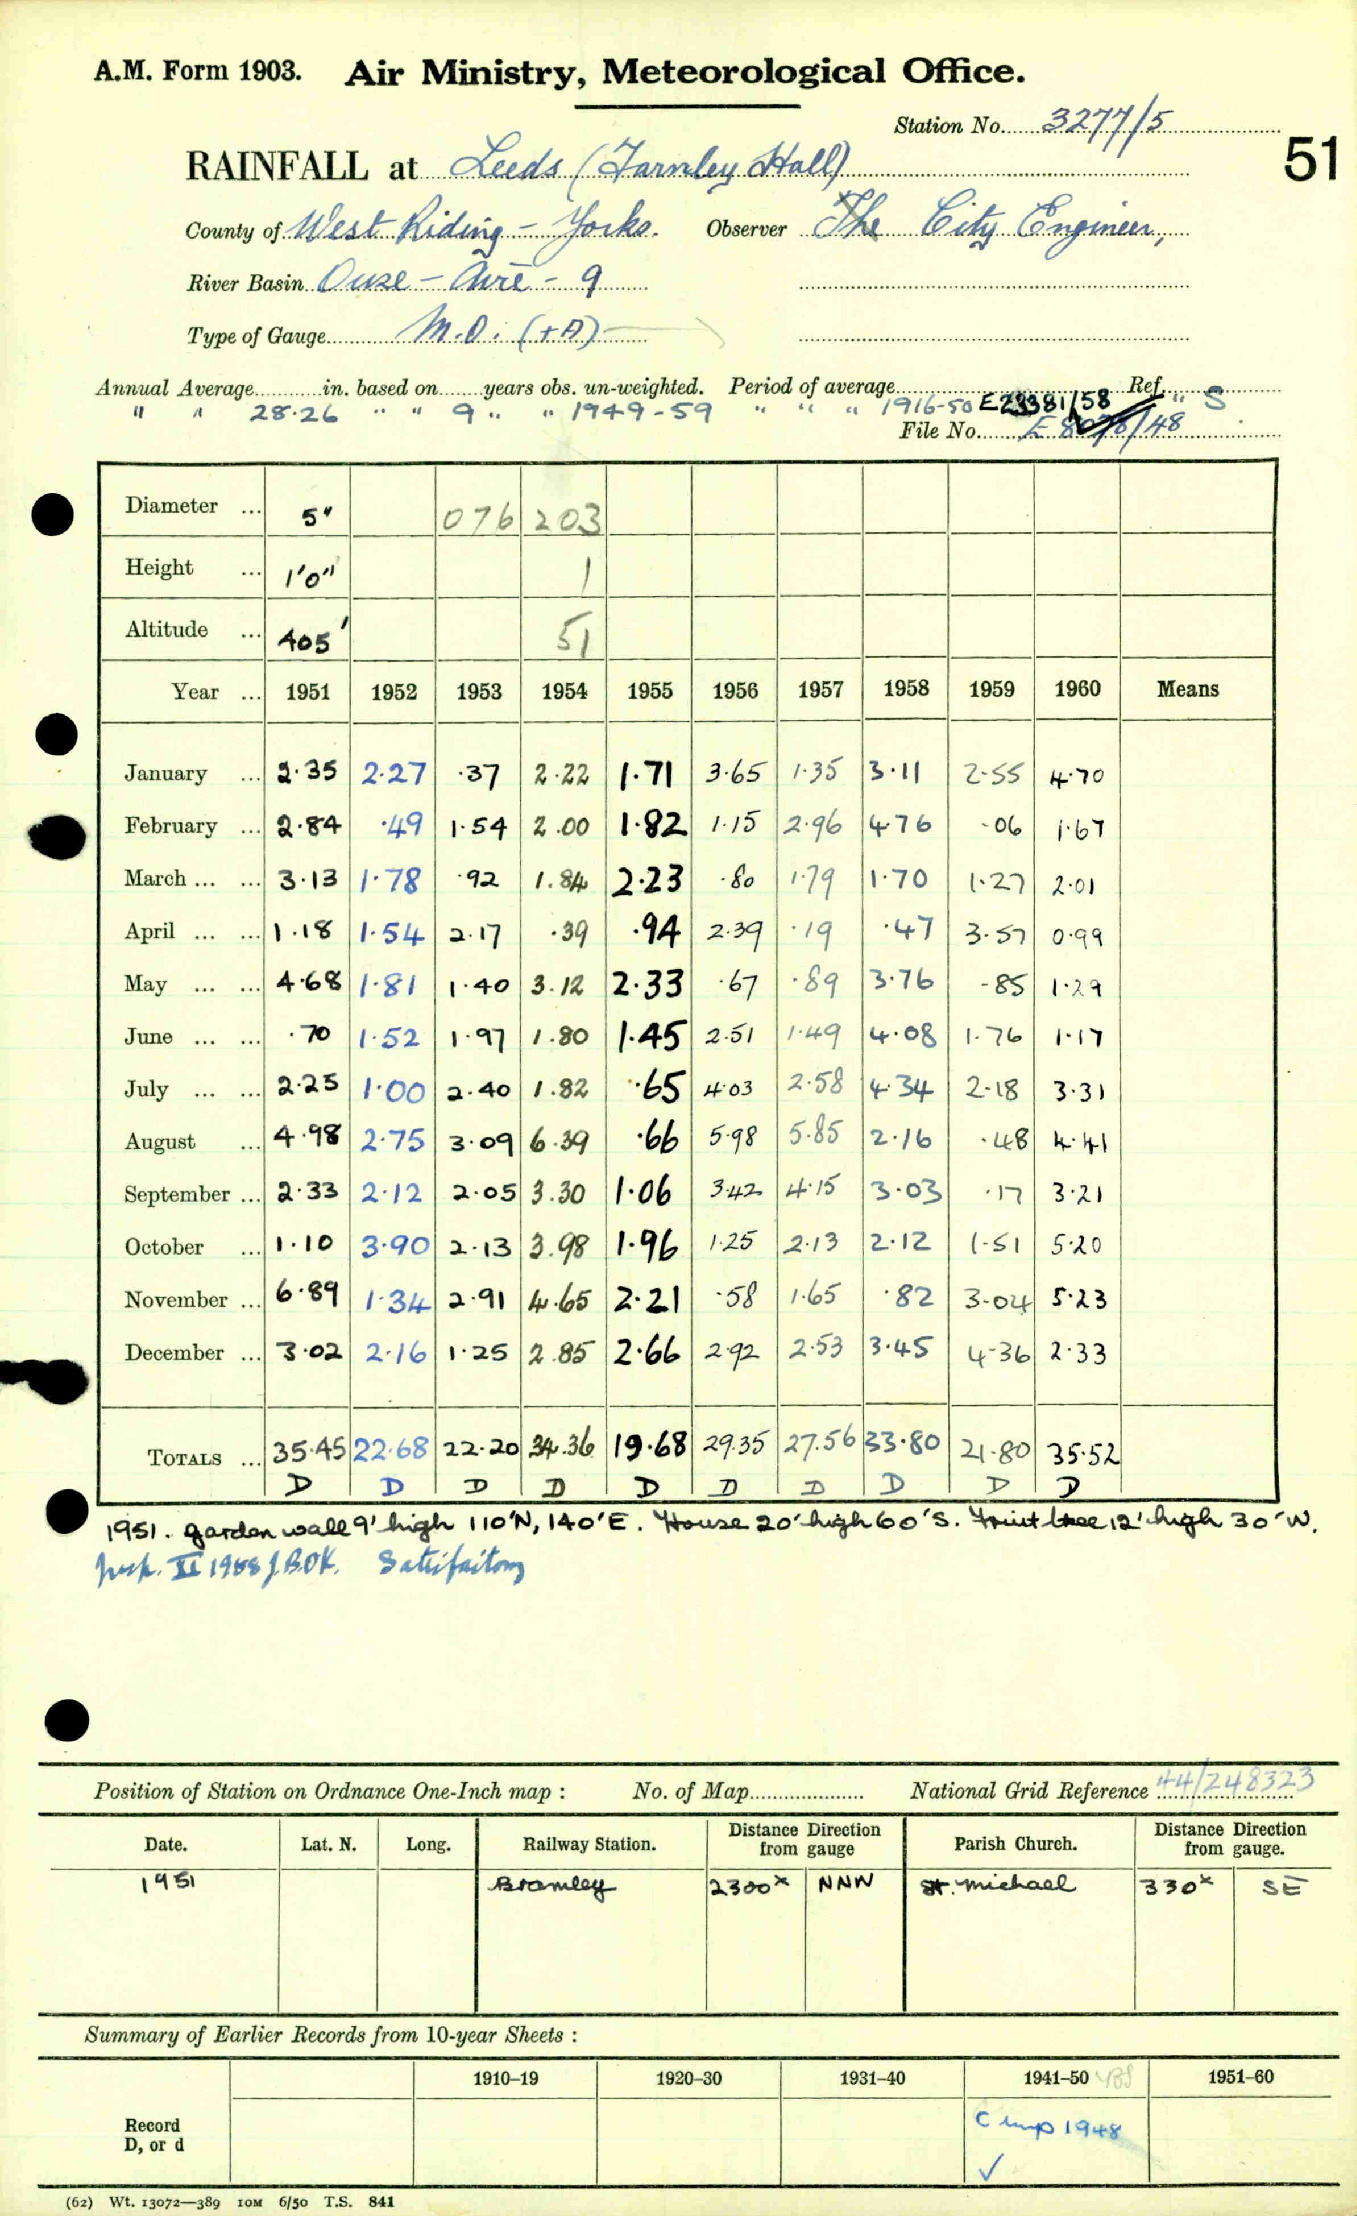 A.M. Form 1903. Air Ministry, Meteorological Office.
Station No. 3277/5
51
RAINFALL at Leeds (Farnley Hall)
County of West Riding - Yorks. Observer The City Engineer,
River Basin Ouse - Aire - 9
Type of Gauge M.O. (+A)
Annual Average in. based on years obs. un-weighted. Period of average Ref.
" " 28.26 " " 9 " " 1949-59 " " " 1916-50 E23381/58 " S
File No. E 8078/48
Diameter ... 5" 076 203
Height ... 1'0" 1
Altitude ... 405' 51
Year ... 1951 1952 1953 1954 1955 1956 1957 1958 1959 1960 Means
January ... 2.35 2.27 .37 2.22 1.71 3.65 1.35 3.11 2.55 4.70
February ... 2.84 .49 1.54 2.00 1.82 1.15 2.96 4.76 .06 1.67
March ... ... 3.13 1.78 .92 1.84 2.23 .80 1.79 1.70 1.27 2.01
April ... ... 1.18 1.54 2.17 .39 .94 2.39 .19 .47 3.57 0.99
May ... ... 4.68 1.81 1.40 3.12 2.33 .67 .89 3.76 .85 1.29
June ... ... .70 1.52 1.97 1.80 1.45 2.51 1.49 4.08 1.76 1.17
July ... ... 2.25 1.00 2.40 1.82 .65 4.03 2.58 4.34 2.18 3.31
August ... 4.98 2.75 3.09 6.39 .66 5.98 5.85 2.16 .48 4.41
September ... 2.33 2.12 2.05 3.30 1.06 3.42 4.15 3.03 .17 3.21
October ... 1.10 3.90 2.13 3.98 1.96 1.25 2.13 2.12 1.51 5.20
November ... 6.89 1.34 2.91 4.65 2.21 .58 1.65 .82 3.04 5.23
December ... 3.02 2.16 1.25 2.85 2.66 2.92 2.53 3.45 4.36 2.33
TOTALS ... 35.45 22.68 22.20 34.36 19.68 29.35 27.56 33.80 21.80 35.52
D D D D D D D D D D
1951. garden wall 9' high 110'N, 140'E. House 20' high 60'S. Fruit tree 12' high 30'W.
Insp. II 1958 J.B.OK. Satisfactory
Position of Station on Ordnance One-Inch map : No. of Map National Grid Reference 44/248323
Date. Lat. N. Long. Railway Station. Distance from Direction gauge Parish Church. Distance from Direction gauge.
1951 Bramley 2300x NNW St. Michael 330x SE
Summary of Earlier Records from 10-year Sheets :
1910-19 1920-30 1931-40 1941-50 1951-60
Record
D, or d
C 1948
✓
(62) Wt. 13072—389 10M 6/50 T.S. 841